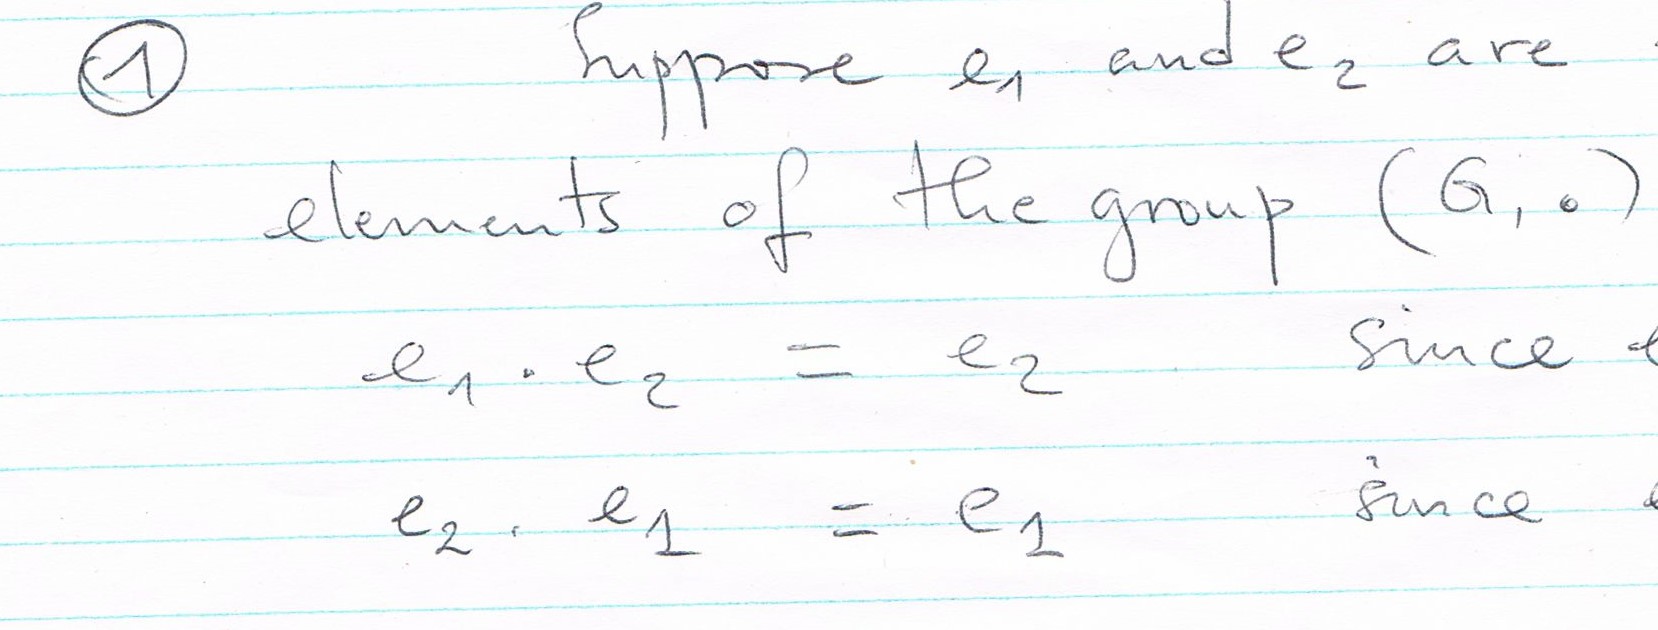 ① Suppose e₁ and e₂ are
elements of the group (G, ∘)
e₁ · e₂ = e₂ since
e₂ · e₁ = e₁ since